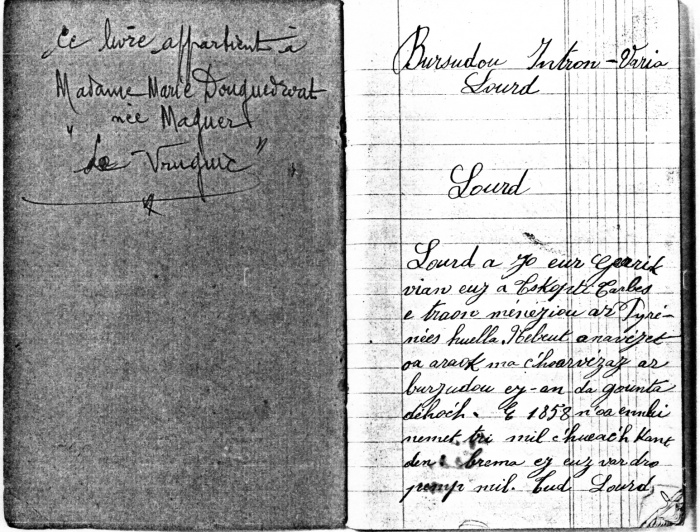 Ce livre appartient à
Madame Marie Douguedroit
née Maguer
" Le Vruguic "
Bursudou Intron-Varia
Lourd
Lourd
Lourd a zo eur gearik
vian euz a Eskopti Tarbes
e traon ménéziou ar Pyré-
nées huella. Nebeut anavezet
oa araok ma c'hoarvézaz ar
burzudou ez-an da gounta
déhoc'h. E 1858 n'oa ennhi
nemet tri mil c'hueac'h kant
den : brema ez euz var dro
pemp mil. Tud Lourd,